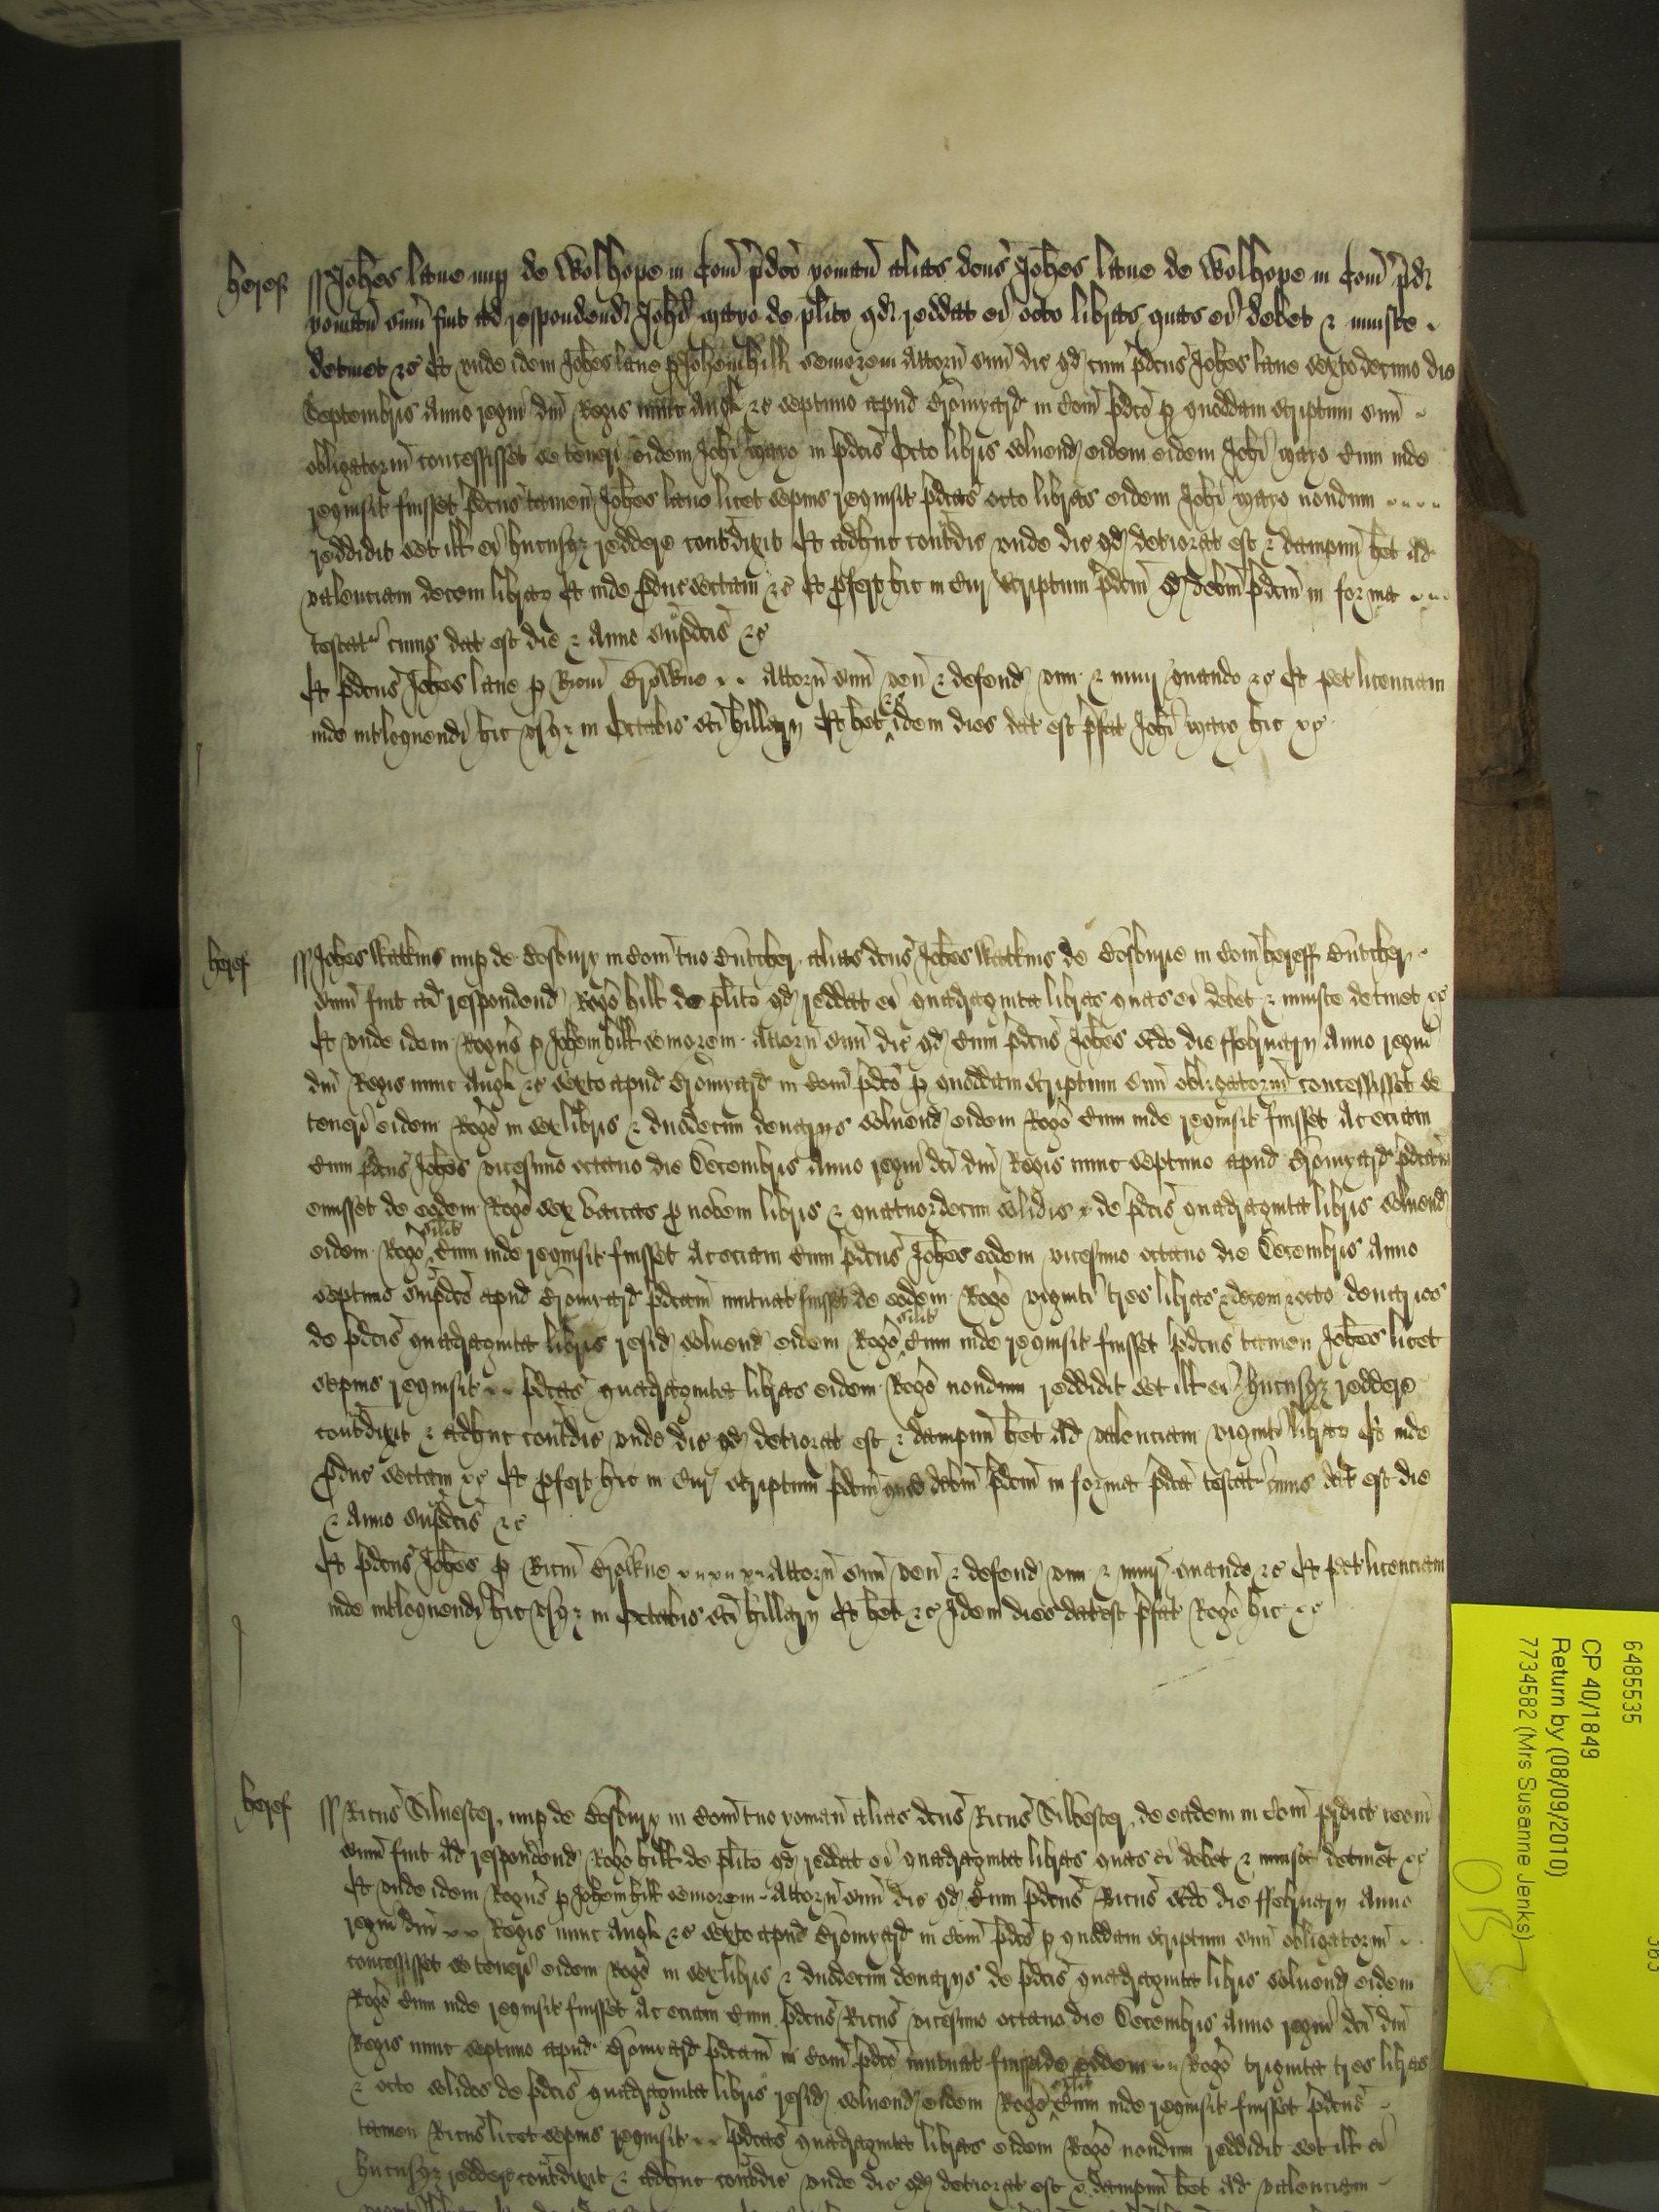 heref
Joh̄es lane nup de Wolhope in Com̄ p̄dc̄o yoman̄ alias dc̄us Joh̄es lane de Wolhope in Com̄ p̄d
yoman̄ sum̄ fuit ad respondend Joh̄i mayo de pl̄ito qd reddat ei octo libras quas ei debet & iniuste
detinet &c Et unde idem Joh̄es p Joh̄em hill seniorem Attorn̄ suū dic qd cum p̄dc̄us Joh̄es lane sexto decimo die
Septembris Anno regni dn̄i Regis nunc Angl &c septimo apud Bromyard in Com̄ p̄dc̄o p quoddam scriptum suū
obligatoriū concessisset se teneri eidem Joh̄i mayo in p̄dc̄is Octo libris solvend eidem eidem Joh̄i mayo Cum inde
requisit fuisset p̄dc̄us tamen Joh̄es lane licet sepius requisit p̄dc̄as octo libras eidem Joh̄i mayo nondum
reddidit set ill ei hucusqz reddere contdixit Et adhuc contdic unde dic qd deteriorat est & dampnū het ad
valenciam decem librar Et inde p̄duc sectam &c Et p̄fert hic in Cur scriptum p̄dc̄m debm̄ p̄dc̄m in forma
testat cuius dat est die & Anno sup̄dc̄is &c
Et p̄dc̄us Joh̄es lane p Ricm̄ Attorn̄ suū ven̄ & defend vim & iniur quando &c Et pet licenciam
inde int̄loquendi hic usqz in Octabis sc̄i hillarij Et het &c idem dies dat est p̄fat Joh̄i mayo hic &c
heref
Joh̄es Watkins nup de Bosbury in Com̄ tuo Butcher alias dc̄us Joh̄es Watkins de Bosburie in Com̄ hereff Butcher
sum̄ fuit ad respondend Rogō hill de pl̄ito qd reddat ei quadraginta libras quas ei debet & iniuste detinet &c
Et unde idem Rogus p Joh̄em hill seniorem Attorn̄ suū dic qd Cum p̄dc̄us Joh̄es scdō die ffebruarij Anno regni
dn̄i Regis nunc Angl &c sexto apud Bromyard in Com̄ p̄dc̄o p quoddam scriptum suū obligatoriū concessisset se
teneri eidem Rogō in sex libris & duodecim denarijs solvend eidem Rogō Cum inde requisit fuisset Ac eciam
Cum p̄dc̄us Joh̄es vicesimo octavo die Decembris Anno regni dc̄i dn̄i Regis nunc septimo apud Bromyard p̄dc̄am
emisset de eodem Rogō sex vaccas p novem libris & quatuordecim solidis de p̄dc̄is quadraginta libris solvend
eidem Rogō silit Cum inde requisit fuisset Ac eciam Cum p̄dc̄us Joh̄es eodem vicesimo octavo die Decembris Anno
septimo sup̄dc̄o apud Bromyard p̄dc̄am mutuat fuisset de eodem Rogō viginti tres libras & decem & octo denarios
de p̄dc̄is quadraginta libris resid solvend eidem Rogō silit Cum inde requisit fuisset p̄dc̄us tamen Joh̄es licet
sepius requisit p̄dc̄as quadraginta libras eidem Rogō nondum reddidit set ill ei hucusqz reddere
contdixit & adhuc contdic unde dic qd deteriorat est & dampnū het ad valenciam viginti librar Et inde
p̄duc sectam &c Et p̄fert hic in Cur scriptum p̄dc̄m quod debm̄ p̄dc̄m in forma p̄dc̄a testat cuius dat est die
& Anno sup̄dc̄is &c
Et p̄dc̄us Joh̄es p Ricm̄ Attorn̄ suū ven̄ & defend vim & iniur quando &c Et pet licenciam
inde int̄loquendi hic usqz in Octabis sc̄i hillarij Et het &c Idem dies dat est p̄fat Rogō hic &c
heref
Ricus Silvester nup de Bosbury in Com̄ tuo yoman̄ alias dc̄us Ricus Silvester de eadem in Com̄ p̄dict
sum̄ fuit ad respondend Rogō hill de pl̄ito qd reddat ei quadraginta libras quas ei debet & iniuste detinet &c
Et unde idem Rogus p Joh̄em hill seniorem Attorn̄ suū dic qd Cum p̄dc̄us Ricus scdō die ffebruarij Anno
regni dn̄i Regis nunc Angl &c sexto apud Bromyard in Com̄ p̄dc̄o p quoddam scriptum suū obligatoriū
concessisset se teneri eidem Rogō in sex libris & duodecim denarijs de p̄dc̄is quadraginta libris solvend eidem
Rogō Cum inde requisit fuisset Ac eciam Cum p̄dc̄us Ricus vicesimo octavo die Decembris Anno regni dc̄i dn̄i
Regis nunc septimo apud Bromyard p̄dc̄am in Com̄ p̄dc̄o mutuat fuisset de eodem Rogō triginta tres libras
& octo solidos de p̄dc̄is quadraginta libris resid solvend eidem Rogō silit Cum inde requisit fuisset p̄dc̄us
tamen Ricus licet sepius requisit p̄dc̄as quadraginta libras eidem Rogō nondum reddidit set ill ei
hucusqz reddere contdixit & adhuc contdic unde dic qd deteriorat est & dampnū het ad valenciam
6485535
CP 40/1849
Return by (08/09/2010)
7734582 (Mrs Susanne Jenks)